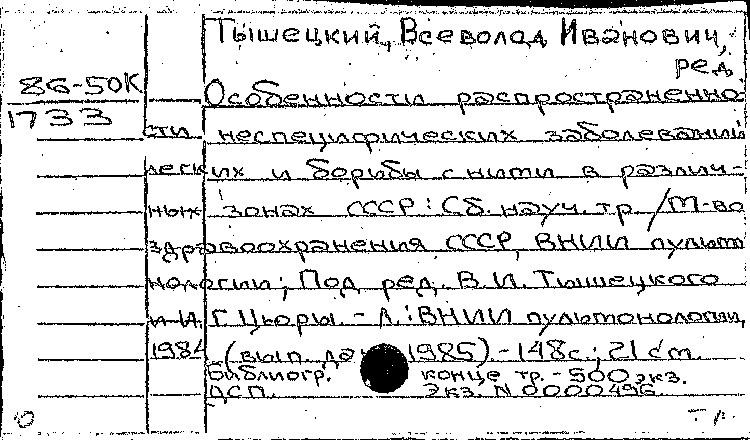 Тышецкий, Всеволод Иванович,
ред.
86-50К
1733
Особенности распространенно-
сти неспецифических заболеваний
легких и борьбы с ними в различ-
ных зонах СССР: Сб. науч. тр./М-во
здравоохранения СССР, ВНИИ пульмо
нологии; Под ред. В.И. Тышецкого
и И.Г. Цюры. - Л.: ВНИИ пульмонологии,
1984 (вып. дан. 1985). - 148с.; 21 см.
Библиогр. конце тр. - 500 экз.
ДСП. Экз. N 0000496